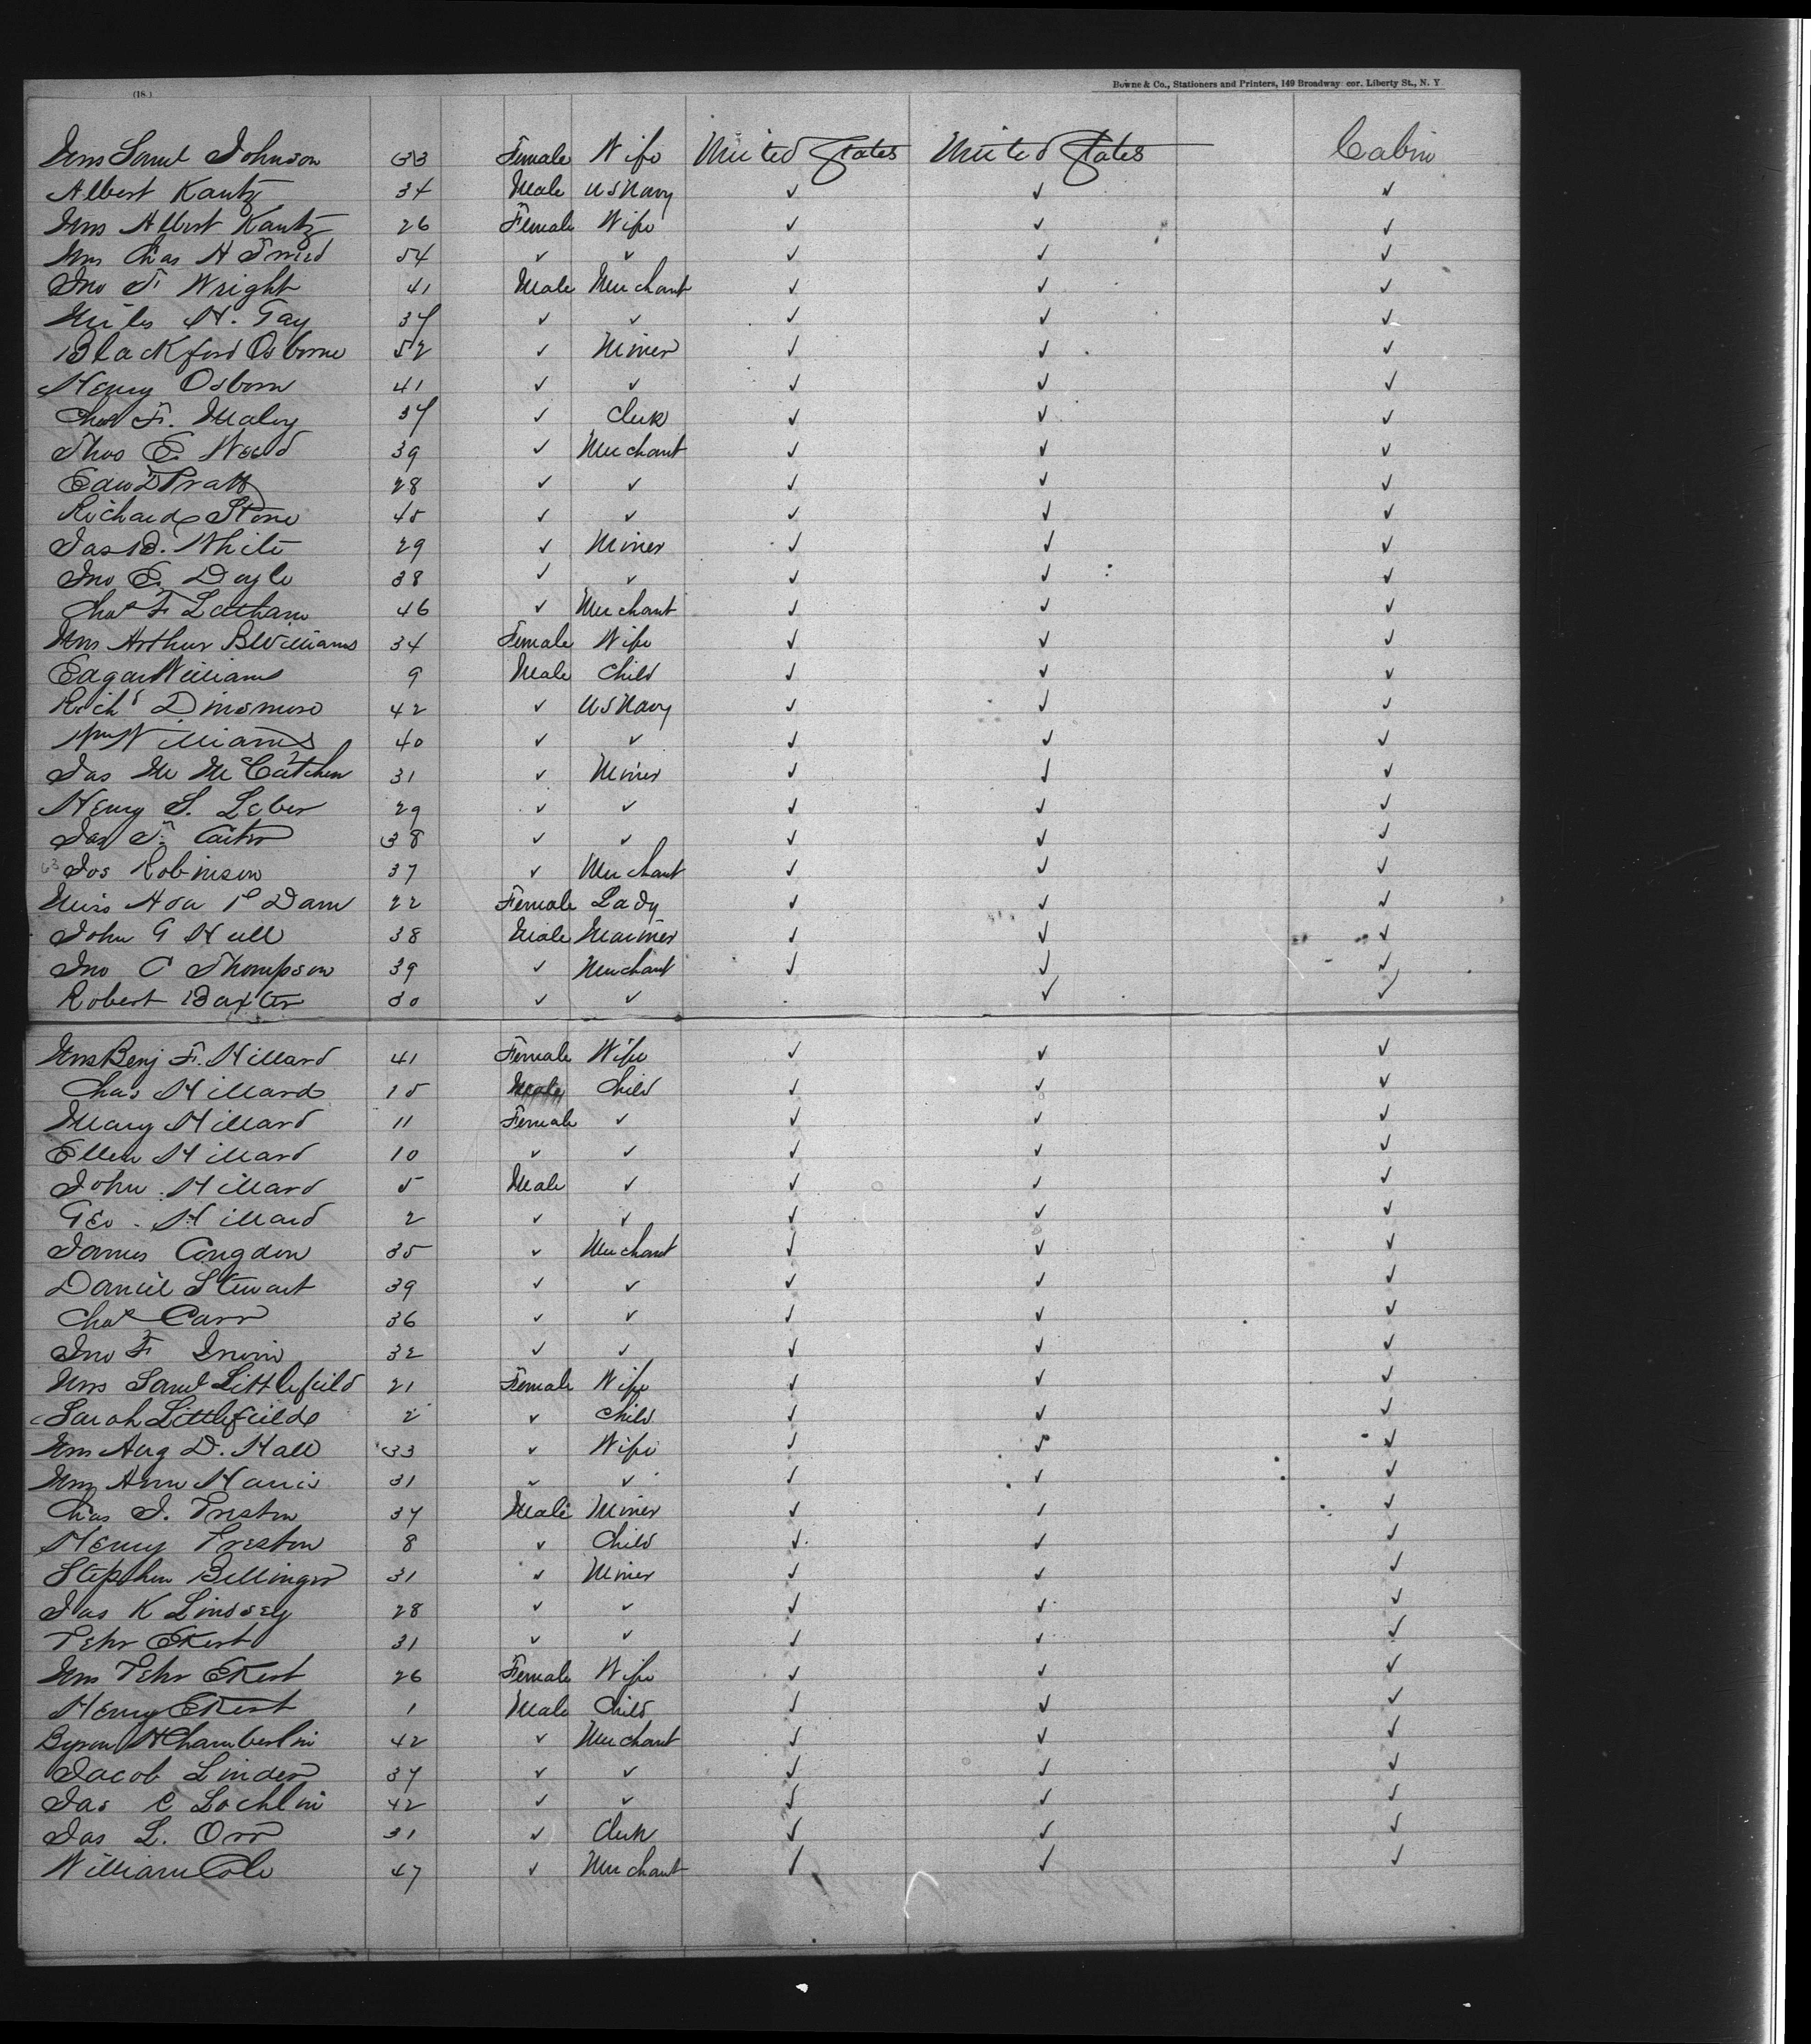 (18.)
Bowne & Co., Stationers and Printers, 149 Broadway cor. Liberty St., N. Y
Mrs Saml Johnson 33 Female Wife United States United States Cabin
Albert Kautz 34 Male US Navy ✓ ✓ ✓
Mrs Albert Kautz 26 Female Wife ✓ ✓ ✓
Mrs Chas H 54 ✓ ✓ ✓ ✓ ✓
Jno F. Wright 41 Male Merchant ✓ ✓ ✓
Miles H. Gay 34 ✓ ✓ ✓ ✓ ✓
Blackford Osborne 52 ✓ Miner ✓ ✓ ✓
Henry Osborn 41 ✓ ✓ ✓ ✓ ✓
Chas F. Maloy 34 ✓ Clerk ✓ ✓ ✓
Thos E. Wood 39 ✓ Merchant ✓ ✓ ✓
Edw D Pratt 28 ✓ ✓ ✓ ✓ ✓
Richard Stone 45 ✓ ✓ ✓ ✓ ✓
Jas B. White 29 ✓ Miner ✓ ✓ ✓
Jno E. Doyle 38 ✓ ✓ ✓ ✓ ✓
Chas F Latham 46 ✓ Merchant ✓ ✓ ✓
Mrs Arthur B Williams 34 Female Wife ✓ ✓ ✓
Edgar Williams 9 Male Child ✓ ✓ ✓
Richd Dinsmore 42 ✓ US Navy ✓ ✓ ✓
Wm Williams 40 ✓ ✓ ✓ ✓ ✓
Jas M McCutchen 31 ✓ Miner ✓ ✓ ✓
Henry S. Leber 29 ✓ ✓ ✓ ✓ ✓
Jas T. Carter 38 ✓ ✓ ✓ ✓ ✓
63 Jos Robinson 37 ✓ Merchant ✓ ✓ ✓
Miss Ada P Dam 22 Female Lady ✓ ✓ ✓
John G Hull 38 Male Mariner ✓ ✓ ✓
Jno C Thompson 39 ✓ Merchant ✓ ✓ ✓
Robert Baxter 30 ✓ ✓ ✓ ✓
Mrs Benj F. Hillard 41 Female Wife ✓ ✓ ✓
Chas Hillard 15 Male Child ✓ ✓ ✓
Mary Hillard 11 Female ✓ ✓ ✓ ✓
Ellen Hillard 10 ✓ ✓ ✓ ✓ ✓
John Hillard 5 Male ✓ ✓ ✓ ✓
Geo. Hillard 2 ✓ ✓ ✓ ✓ ✓
James Congdon 35 ✓ Merchant ✓ ✓ ✓
Daniel Stewart 39 ✓ ✓ ✓ ✓ ✓
Chas Carr 36 ✓ ✓ ✓ ✓ ✓
Jno F Irwin 32 ✓ ✓ ✓ ✓ ✓
Mrs Saml Littlefield 21 Female Wife ✓ ✓ ✓
Sarah Littlefield 2 ✓ Child ✓ ✓ ✓
Mrs Aug D. Hall 33 ✓ Wife ✓ ✓ ✓
Mrs Ann Harris 31 ✓ ✓ ✓ ✓ ✓
Chas J. Preston 34 Male Miner ✓ ✓ ✓
Henry Preston 8 ✓ Child ✓ ✓ ✓
Stephen Bellinger 31 ✓ Miner ✓ ✓ ✓
Jas K Lindsey 28 ✓ ✓ ✓ ✓ ✓
Peter Ekert 31 ✓ ✓ ✓ ✓ ✓
Mrs Peter Ekert 26 Female Wife ✓ ✓ ✓
Henry Ekert 1 Male Child ✓ ✓ ✓
Byron H Chamberlin 42 ✓ Merchant ✓ ✓ ✓
Jacob Linder 34 ✓ ✓ ✓ ✓ ✓
Jas C Lochlin 42 ✓ ✓ ✓ ✓ ✓
Jas L. Orr 31 ✓ Clerk ✓ ✓ ✓
William Cole 47 ✓ Merchant ✓ ✓ ✓